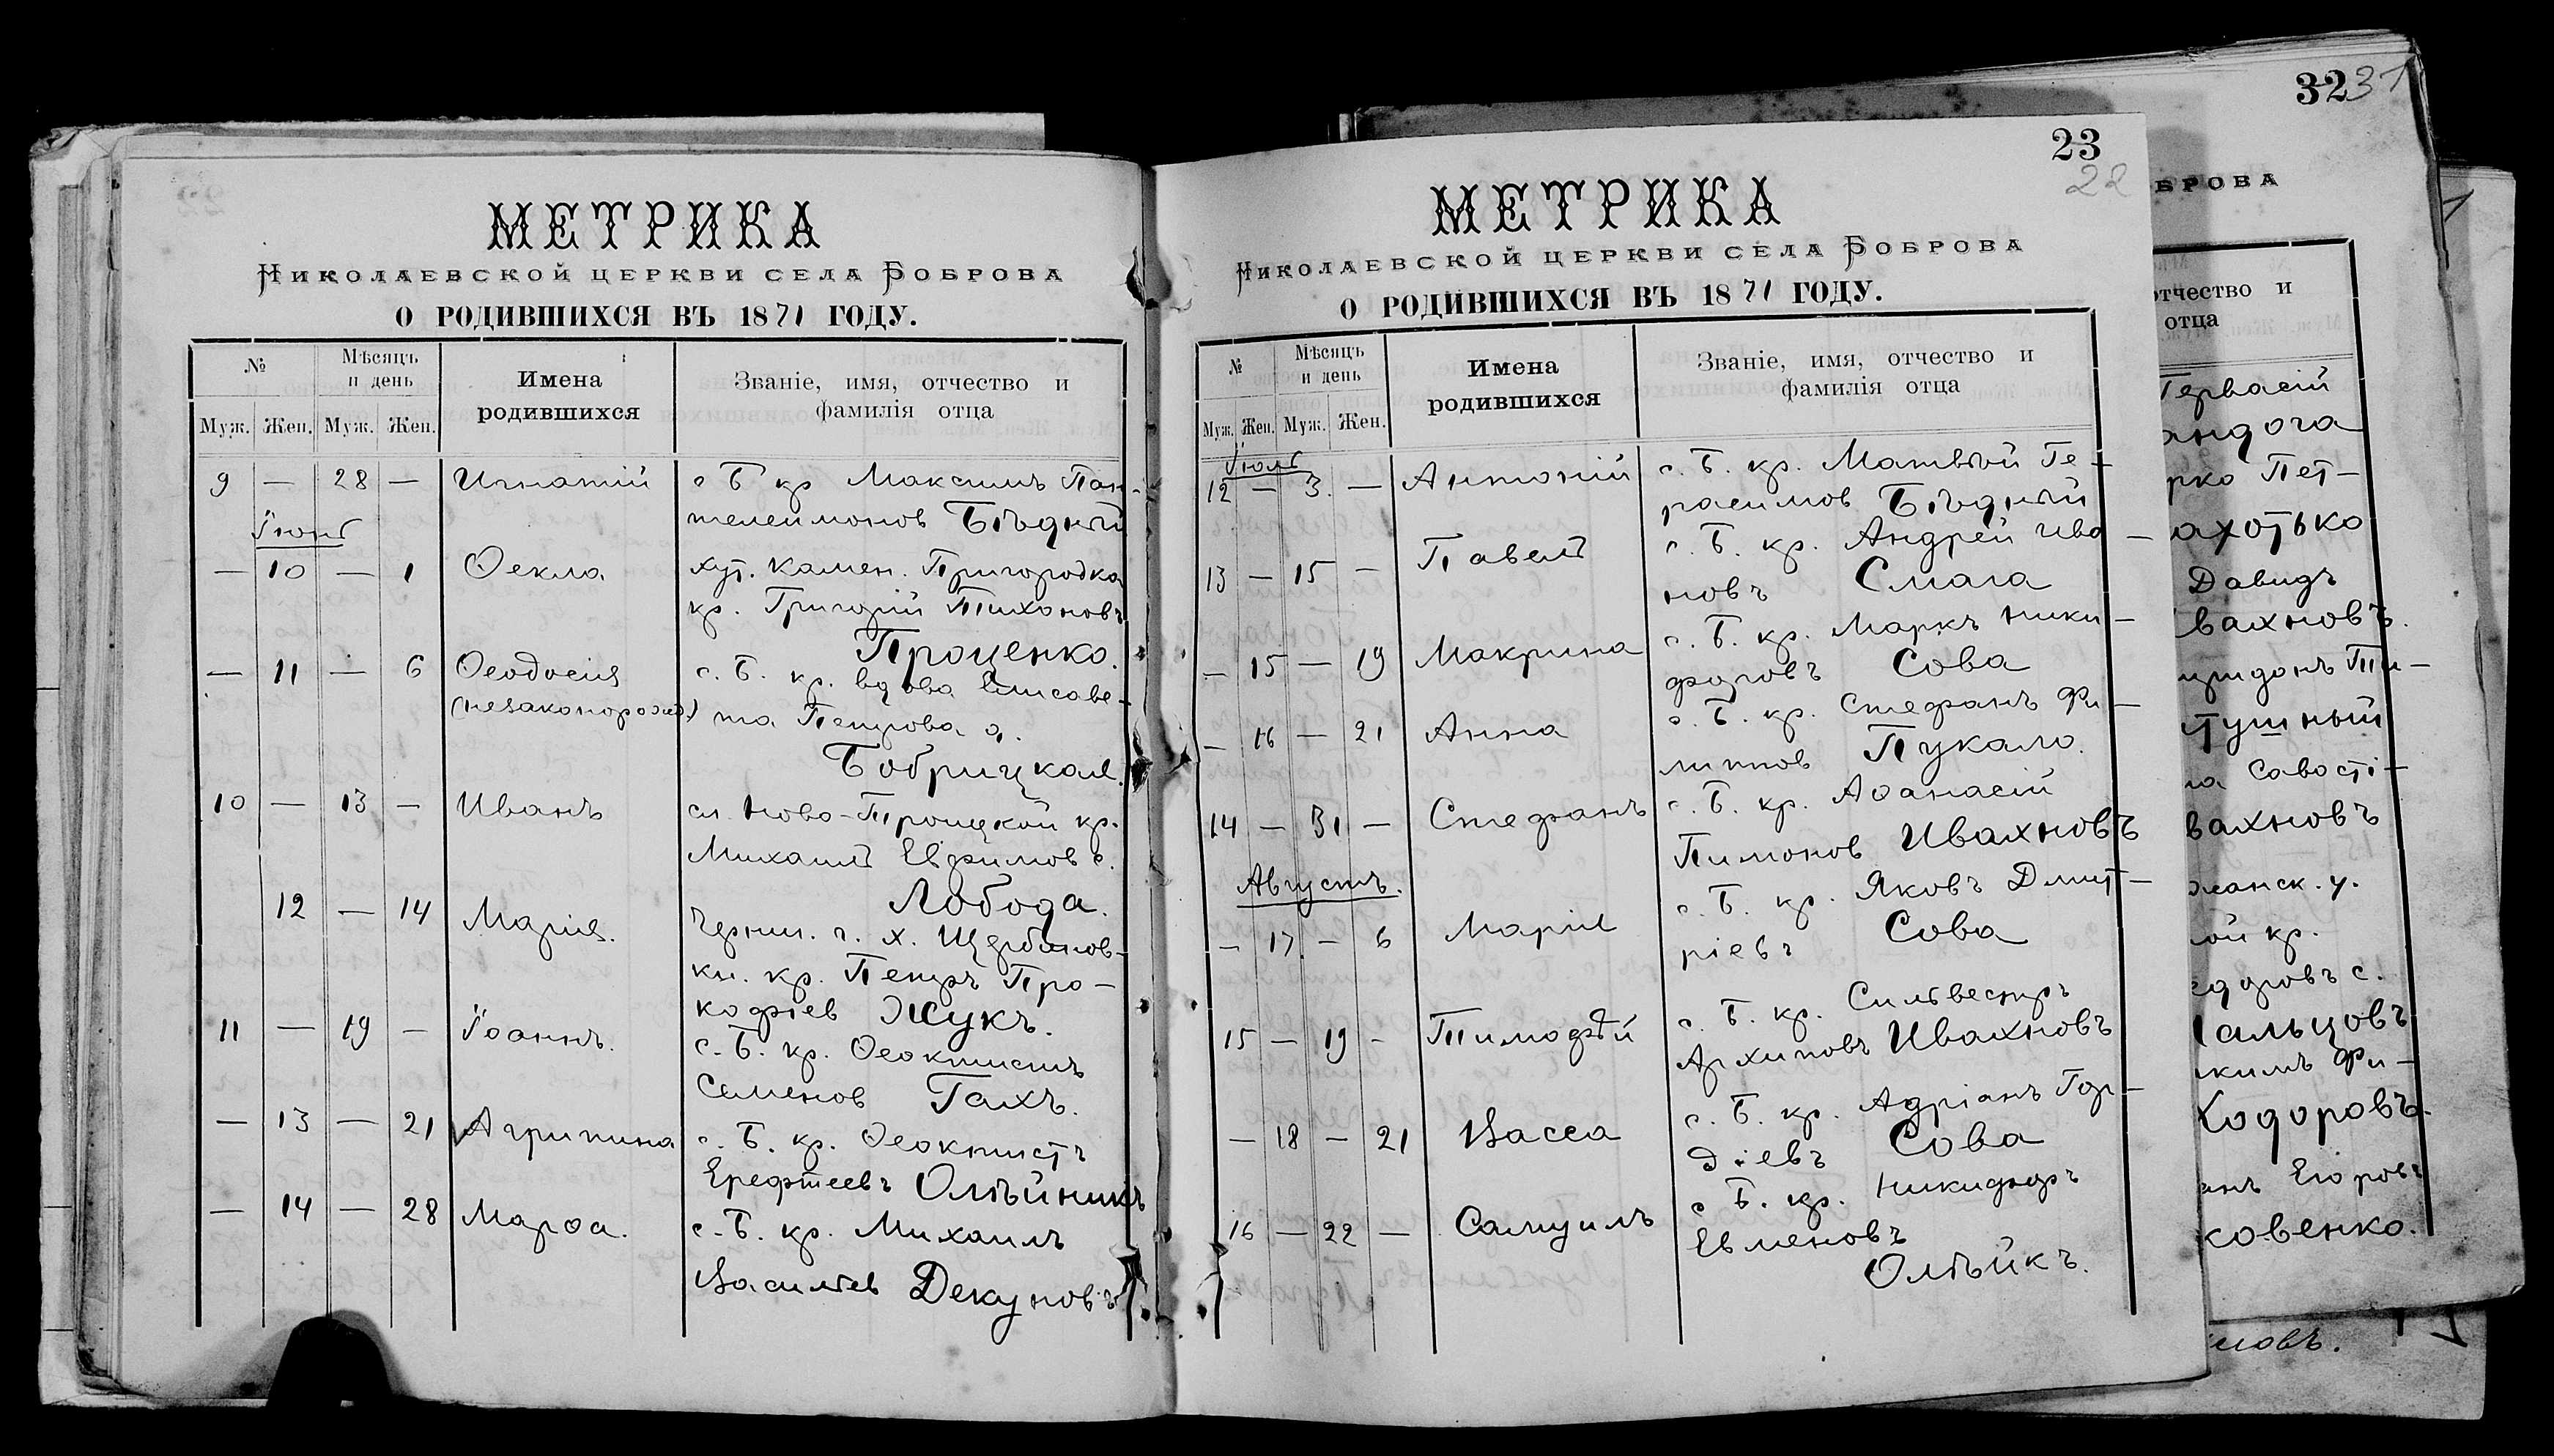 МЕТРИКА
НИКОЛАЕВСКОЙ ЦЕРКВИ СЕЛА БОБРОВА
О РОДИВШИХСЯ ВЪ 1871 ГОДУ.
№ Мѣсяцъ и день Имена родившихся Званіе, имя, отчество и фамилія отца
Муж. Жен. Муж. Жен.
9 — 28 — Игнатій с Б кр Максимъ Пан-
телеимонов Бѣдный
Іюнь
— 10 — 1 Ѳекла хут. Камен. Пригородка
кр. Григорій Тихоновъ
Проценко.
— 11 — 6 Ѳеодосія с. Б. кр. вдова Елисаве-
(незаконорожд.) та Петрова д.
Бобрицкая.
10 — 13 — Иванъ сл. Ново-Троицкой кр.
Михаилъ Евфимов с.
Лобода.
12 — 14 Марія. Черниг. г. х. Щербинов-
ки. кр. Петръ Про-
кофіев Жукъ.
11 — 19 — Іоаннъ. с. Б. кр. Ѳеоктистъ
Семенов Гахъ.
— 13 — 21 Агрипина с. Б. кр. Ѳеоктистъ
Олѣйникъ
— 14 — 28 Марѳа. с. Б. кр. Михаилъ
Васильев Декуновъ
23
22
МЕТРИКА
НИКОЛАЕВСКОЙ ЦЕРКВИ СЕЛА БОБРОВА
О РОДИВШИХСЯ ВЪ 1871 ГОДУ.
№ Мѣсяцъ и день Имена родившихся Званіе, имя, отчество и фамилія отца
Муж. Жен. Муж. Жен.
Іюль
12 — 3. — Антоній с. Б. кр. Матвѣй Ге-
расимов Бѣдный
13 — 15 — Павелъ с. Б. кр. Андрей Ива-
новъ Смага
— 15 — 19 Макрина с. Б. кр. Маркъ Ники-
форовъ Сова
— 16 — 21 Анна с. Б. кр. Стефанъ Фи-
липпов Пукало.
14 — 31 — Стефанъ с. Б. кр. Аѳанасій
Пимонов Ивахновъ
Августъ.
— 17 — 6 Марія с. Б. кр. Яковъ Дмит-
ріевъ Сова
15 — 19 — Тимофѣй с. Б. кр. Сильвестръ
Архиповъ Ивахновъ
— 18 — 21 Васса с. Б. кр. Адріанъ Гор-
діевъ Сова
16 — 22 — Самуилъ с Б. кр. Никифоръ
Евменовъ
Олѣйкъ.
32 31
БРОВА
отчество и
отца
Гервасій
андога
рко Пет-
ахотько
Давидъ
вахновъ.
Ти-
тушный
на Савостi-
вахновъ
жанск. у.
ой кр.
едоровъ с.
альцовъ
кимъ Фи-
Ходоровъ.
анъ Егоровъ
ковенко.
ловъ.